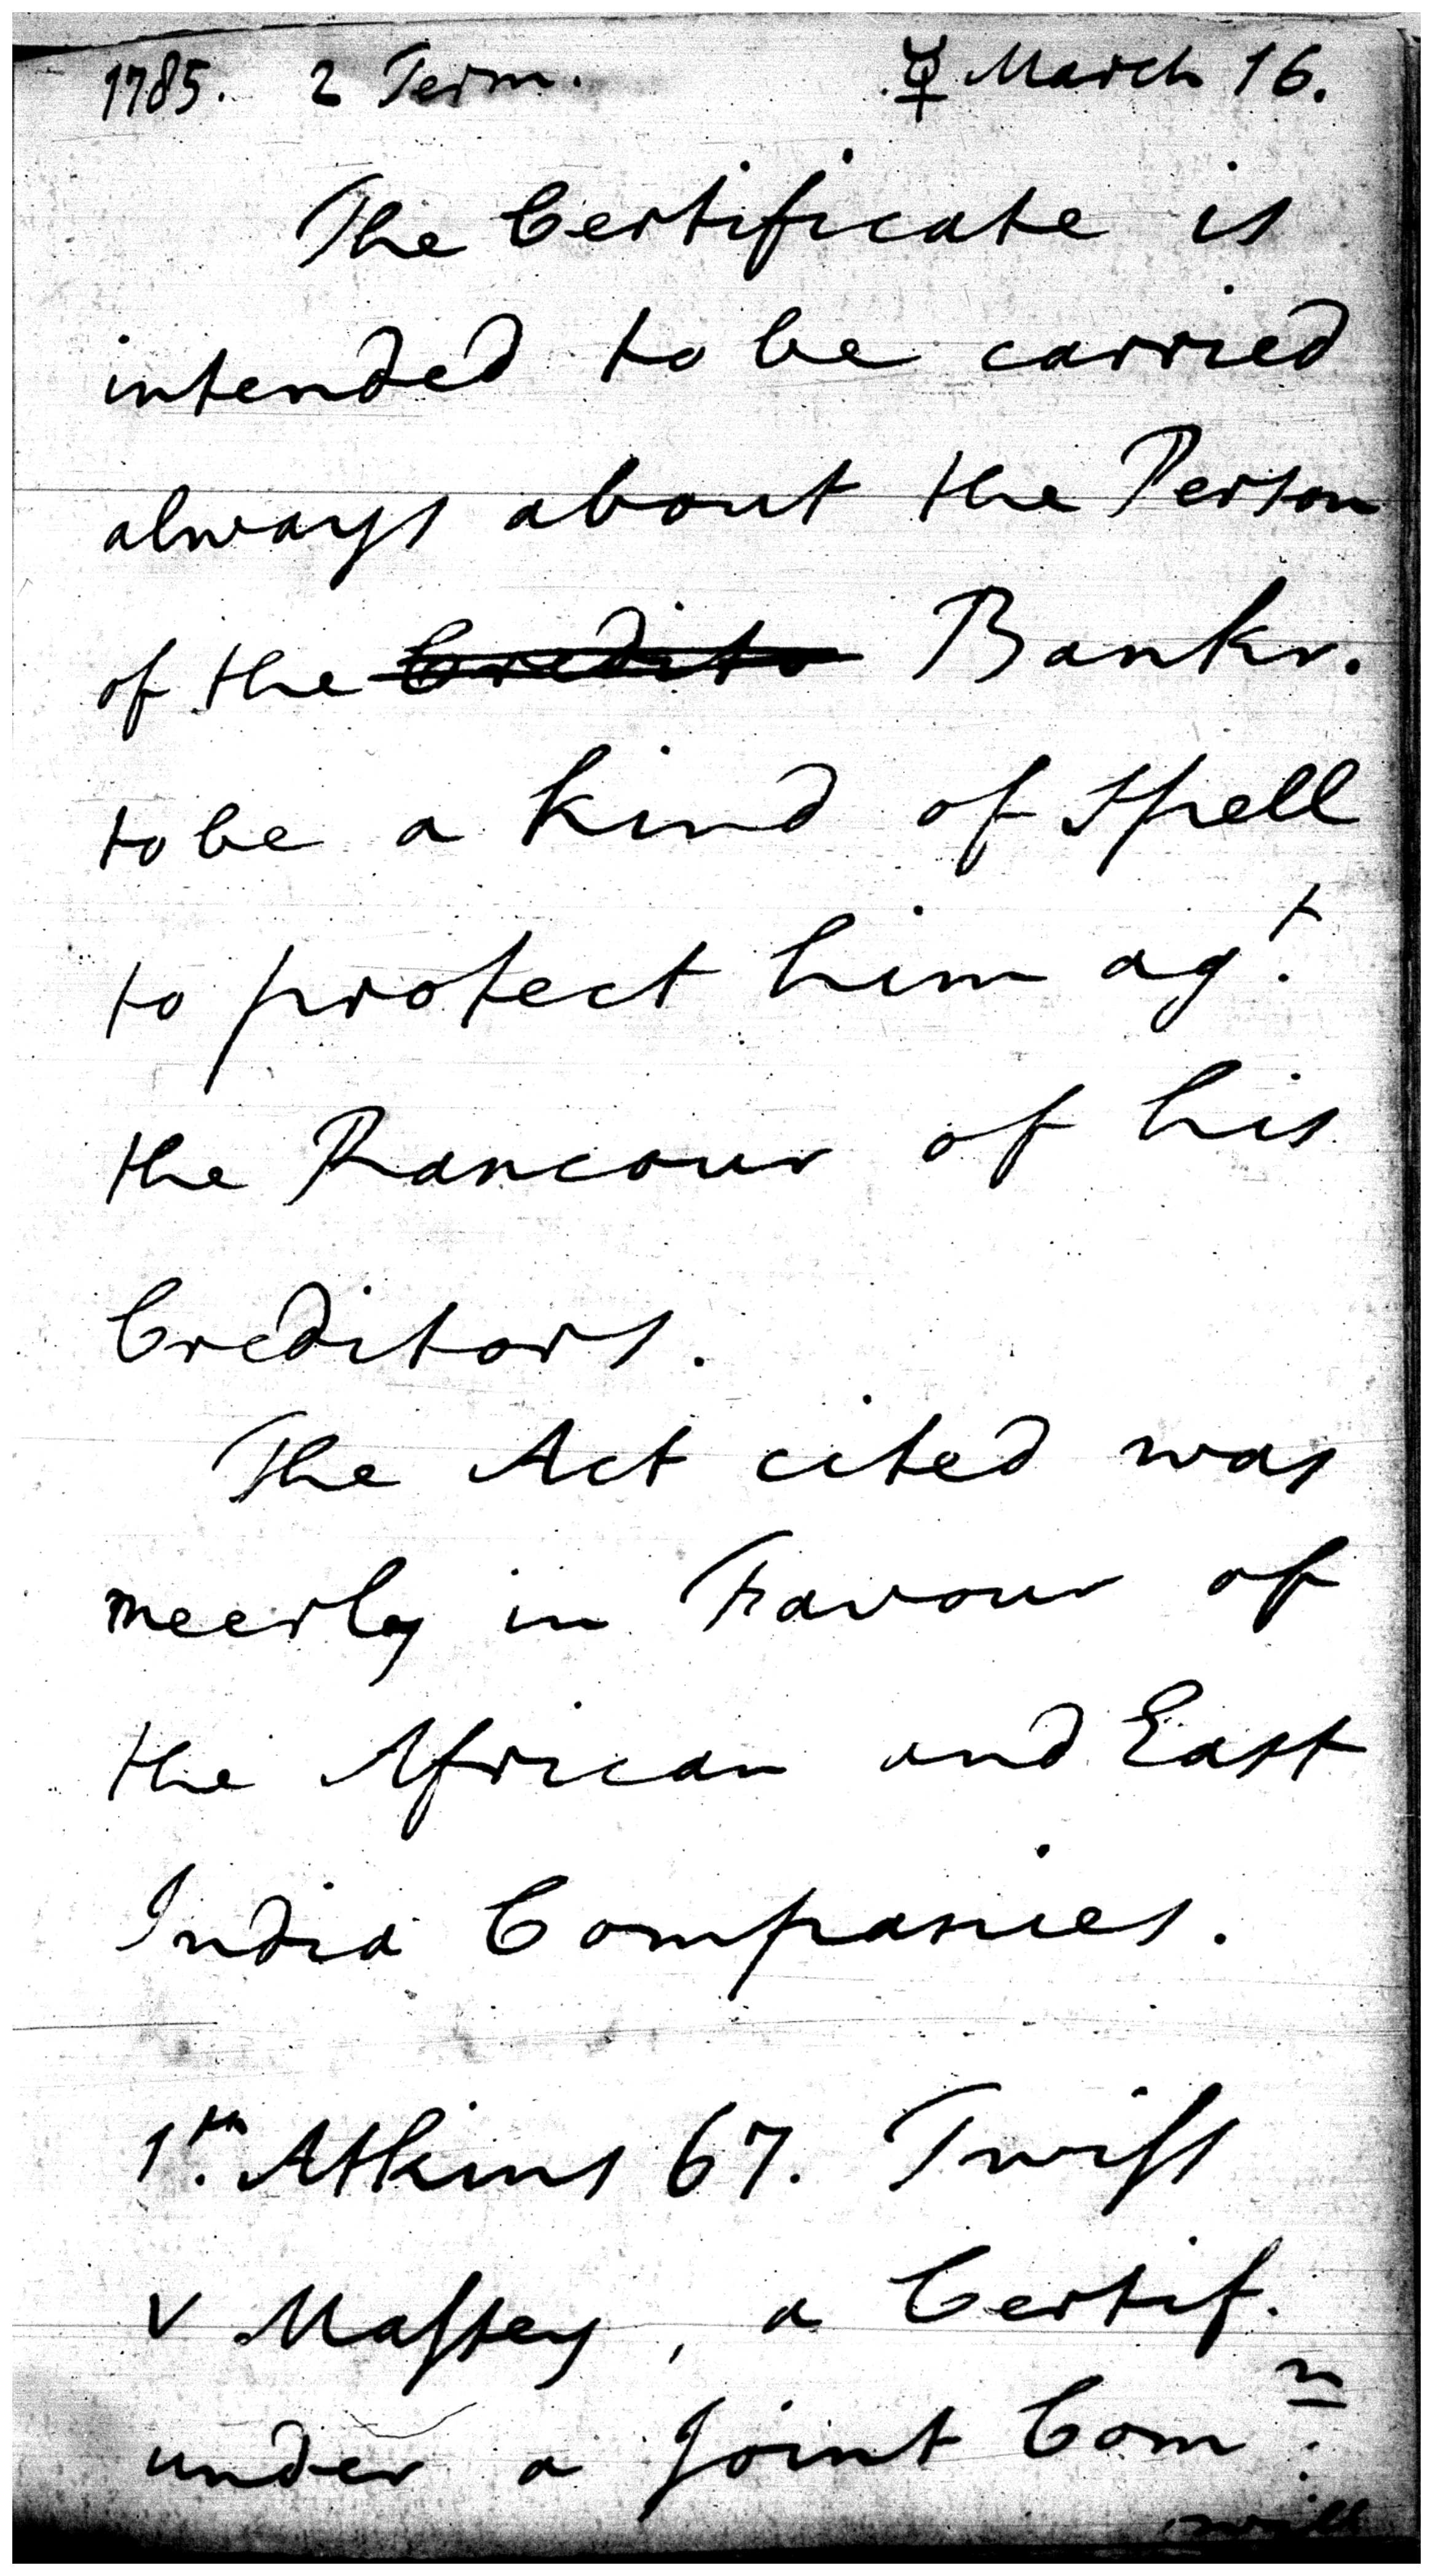 1785. 2 Term. ☿ March 16.
The Certificate is
intended to be carried
always about the Person
of the Credito Bankr.
to be a kind of spell
to protect him agt.
the Rancour of his
Creditors.
The Act cited was
meerly in Favour of
the African and East
India Companies.
1.tr Atkins 67. Twiss
v Massey, a Certif.
under a Joint Comn.
will